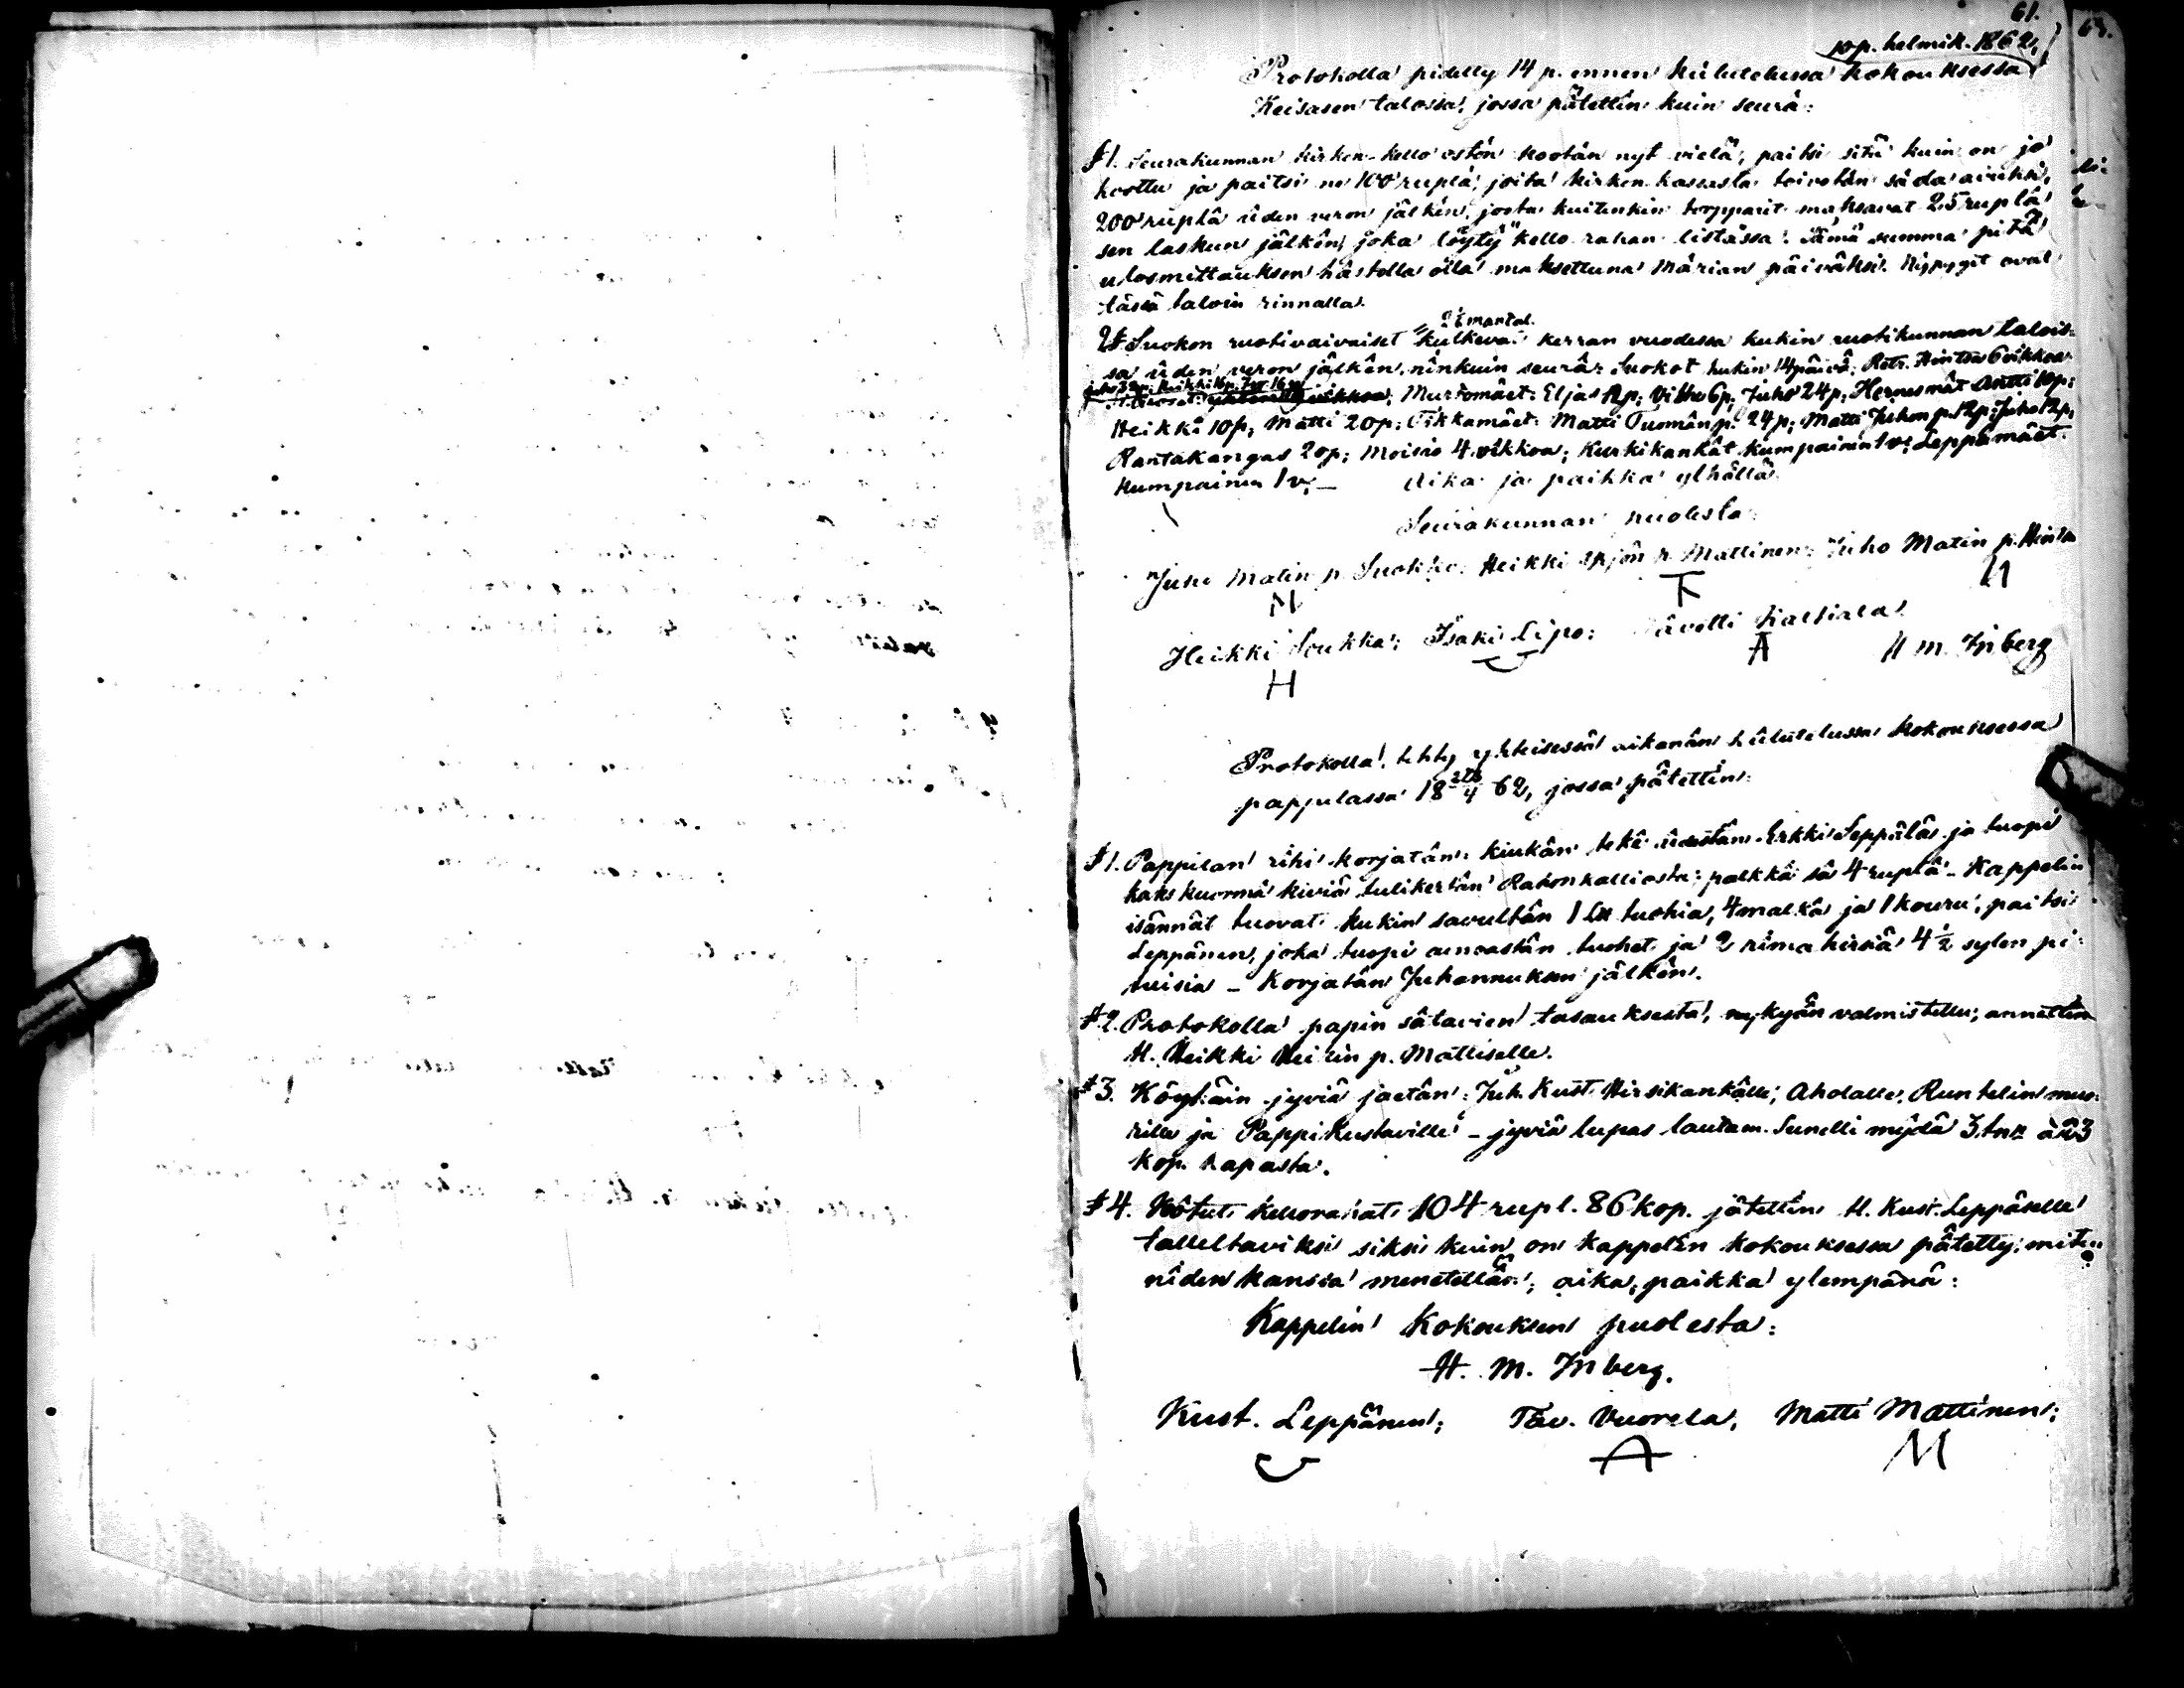 61.
10 p. helmik. 1862,
Protokolla pidetty 14 p. ennen kûlutetussa kokouksessa
Keisasen talossa, jossa pâtettîn kuin seurâ:
§1. Seurakunnan kirken-kello oston kootân nyt vielâ, paitsi sitä kuin on jo
koottu ja paitsi ne 100 ruplâ, joita kirken kassasta toivotân sâda avuksi,
200 ruplâ ûden veron jälkên, josta kuitenkin torpparit maksavat 25 ruplâ
sen laskun jälkên, joka löyty kello rahan listassa. Tämä summa pitâ
ulosmittauksen hâstolla olla maksettuna Mârian päivâksi. Nipygit ovat
tässä taloin rinnalla.
2§ Suokon ruotivaivaiset kulkevat kerran vuodessa kukin ruotikunnan talois-
sa ûden veron jälkên, nînkuin seurâ: Suokot kukin 14 päivâ; Petr. Hintsa 6 vikkoa
Murtomäet: Eljas 12p; Vihto 6p; Juho 24p; Hernesmät Antti 10p;
Heikki 10p, Matti 20p; Tikkamäet: Matti Tuomân p. 24p; Matti Juhon p. 12p; Juho 12p,
Rantakangas 20p; Moisio 4 vikkoa; Kurkikankât kumpainen 1 v; Leppämäet
kumpainen 1 v; — Aika ja paikka ylhällä
Seurakunnan puolesta:
Juho Matin p. Suokko. Heikki Yrjön p. Mattinen; Juho Matin p. Hintsa
M H
Heikki Soukka; Isaki Lipo; Tâvetti Hallala.
H A H M. Inberg
Protokolla, tehty yhteisessä aikanân kûlutetussa kokouksessa
pappilassa 18 4 62, jossa pâtettîn:
§1. Pappilan rîhi korjatân: kiukân tekê ûdestân Erkki Seppälä ja tuopi
kaks kuormâ kiviä tulikertân Rahonkalliosta: palkkâ sâ 4 ruplâ — Kappelin
isännät tuovat kukin savultân 1 L℔ tuohia, 4 malkâ ja 1 kouru, paitsi
Leppänen, joka tuopi ainoastân tuohet ja 2 rîma hirsiä 4½ sylen pi-
tuisia — Korjatân Juhannuksen jälkên.
§2. Protokolla papin sâtavien tasauksesta, nykyân valmistettu, annettîn
H. Heikki Heikin p. Mattiselle.
§3. Köyhäin jyviä jaetân: Juh. Kust. Hirsikankâlle; Aholalle, Runtelin muo-
rille ja Pappi Kustaville — jyviä lupas lautam. Sunelli mydä 3 tnr à 23
kop. kapasta.
§4. Kôtut kellorahat 104 rupl. 86 kop. jätettîn H. Kust. Leppäselle
talleltaviksi siksi kuin on kappelin kokouksessa pâtetty, miten
nîden kanssa menetellân; aika, paikka ylempänä:
Kappelin Kokouksen puolesta:
H. M. Inberg.
Kust. Leppänen; Tav. Vuorela, Matti Mattinen;
A M